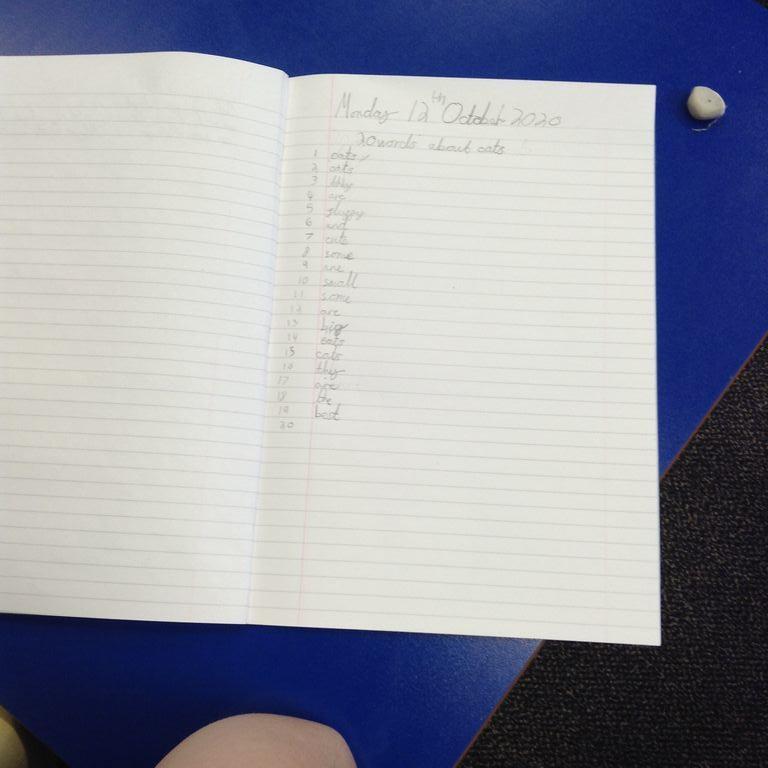 Monday 12th October 2020
20 words about cats
1 cats
2 cats
3 they
4 are
5 fluffy
6 and
7 cute
8 some
9 are
10 small
11 some
12 are
13 big
14 cats
15 cats
16 they
17 are
18 the
19 best
20